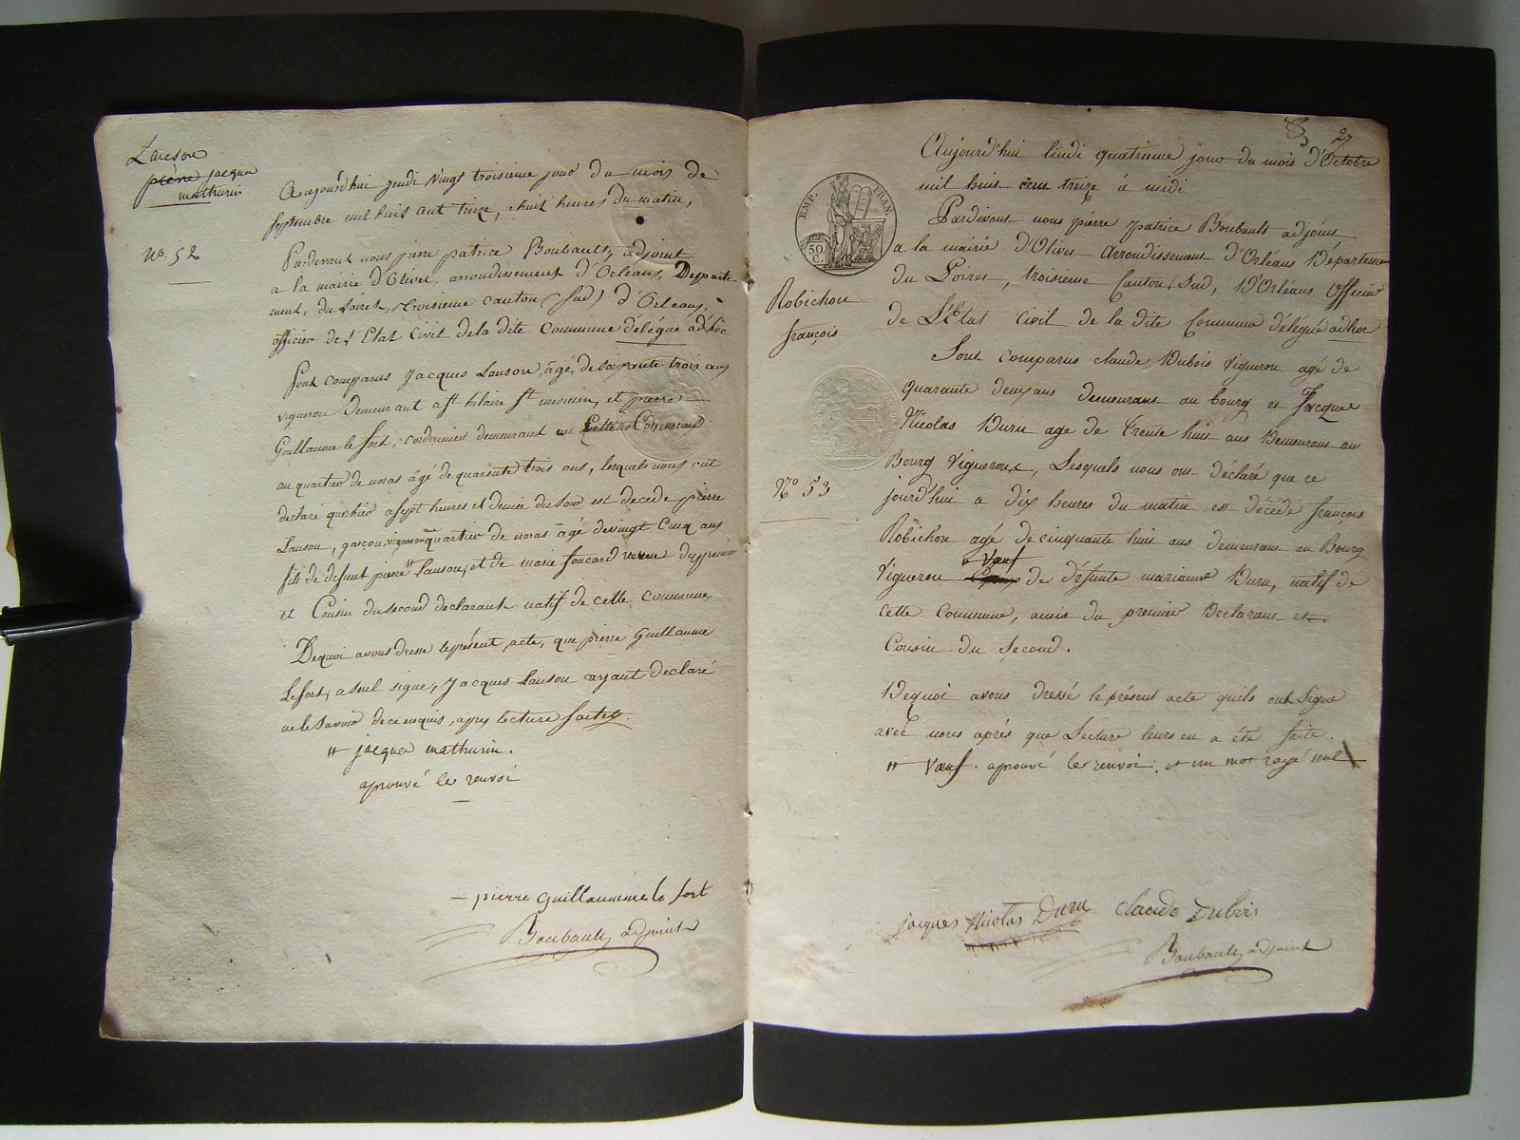 Lanson
pierre jacque
mathurin
No. 52
Aujourd'hui jeudi vingt troisieme jour du mois de
septembre mil huit cent treize, à huit heures du matin,
Pardevant nous pierre patrice Boubault, adjoint
a la mairie d'Olivet arrondissement d'Orleans, Departe
ment, du Loiret, troisieme canton (sud) d'Orleans,
officier de l'Etat Civil de la dite Commune délégué ad'hoc
sont comparus Jacques Lanson, âgé, de soixante trois ans
vigneron demeurant a st hilaire st mesmin, et pierre
Guillaume le fort, cordonnier demeurant en Cette Commune
au quartier de noras âgé de quarante trois ans, lesquels nous ont
declaré qu'hier a sept heures et demie du soir est decede pierre
Lanson, garçon vigneron quartier de noras âgé de vingt cinq ans
fils de defunt pierre " Lanson, et de marie foucard neveu du premier
et Cousin du second declarant natif de cette commune,
Dequoi avons dressé le présent acte, que pierre Guillaume
Lefort, a seul signé, Jacques Lanson ayant declaré
ne le savoir de ce enquis, apres lecture faite.
" jacque mathurin.
aprouvé le renvoi
pierre guillaumme le fort
Boubault, adjoint
27
Aujourd'hui lundi quatrieme jour du mois d'Octobre
mil huit cent treize à midi
EMP. FRAN.
50 C.
Pardevant nous pierre patrice Boubault adjoint
a la mairie d'Olivet Arrondissement d'Orléans Département
du Loiret, troisieme Canton, Sud, d'Orléans Officier
de L'Etat Civil de la dite Commune délégué ad hoc
Robichon
françois
Sont comparus claude Dubois vigneron agé de
quarante deux ans demeurant au bourg et Jacque
Nicolas Duru age de trente huit ans demeurant au
Bourg vigneron, Lesquels nous ont déclaré que ce
No 53
jourd'hui a dix heures du matin est décédé françois
Robichon agé de cinquante huit ans demeurant au Bourg
" Veuf
Vigneron de défunte marianne Duru, natif de
cette Commune, amis du premier Declarant et
Cousin du Second.
Dequoi avons dressé le présent acte qu'ils ont signé
avec nous après que Lecture leurs en a été faite.
" veuf. aprouvé le renvoi. et un mot rayé nul
jacques Nicolas Duru claude Dubois
Boubault, adjoint